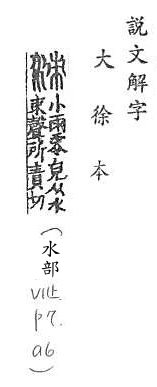 說文解字
大徐本
洓 小雨零皃从水
朿聲所責切
(水部
上
p7.
a6)